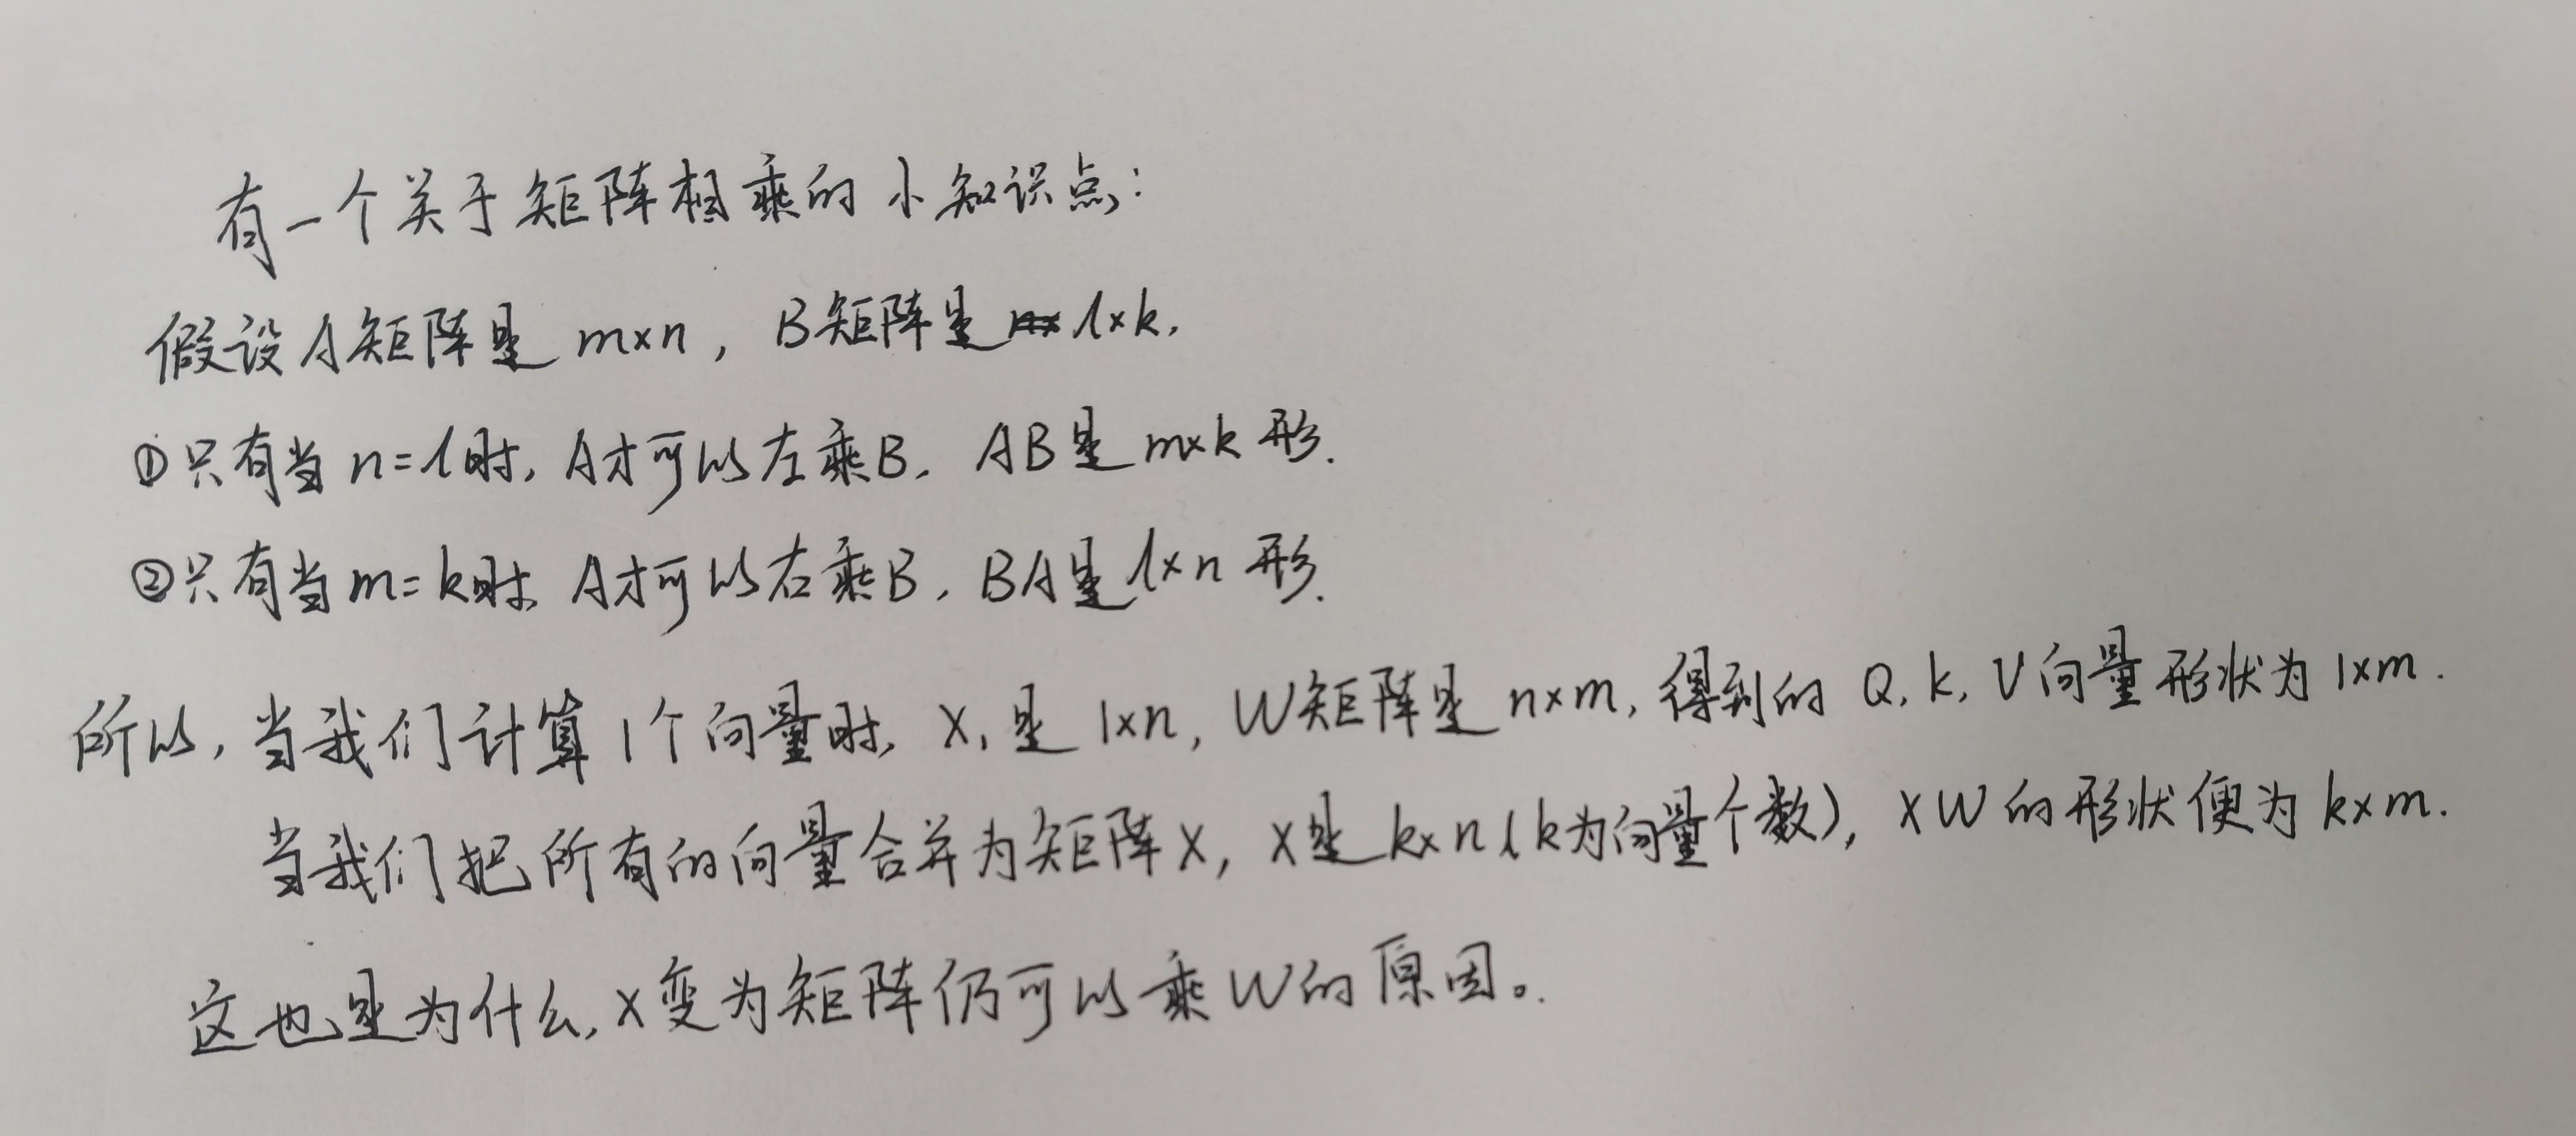 有一个关于矩阵相乘的小知识点:
假设A矩阵是 m×n, B矩阵是 l×k.
①只有当 n=l时, A才可以左乘B. AB是 m×k 形.
②只有当 m=k时, A才可以右乘B. BA是 l×n 形.
所以, 当我们计算1个向量时, X₁是 1×n, W矩阵是 n×m, 得到的 Q, K, V向量形状为 1×m.
当我们把所有的向量合并为矩阵X, X是k×n(k为向量个数), XW的形状便为 k×m.
这也是为什么, X变为矩阵仍可以乘W的原因。